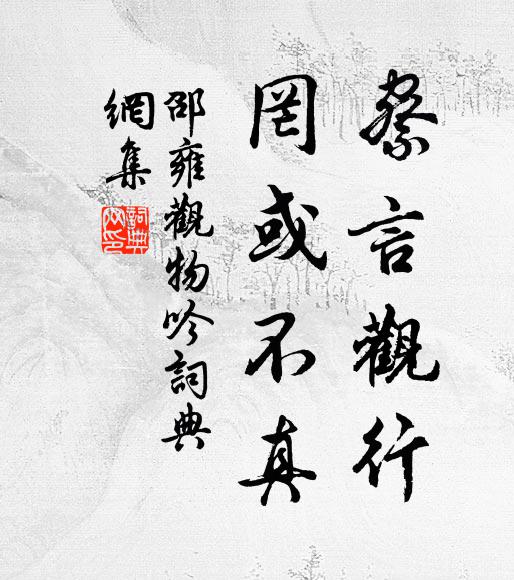 察言觀行
罔或不真
邵雍觀物吟詞典
網集
詞典
網印